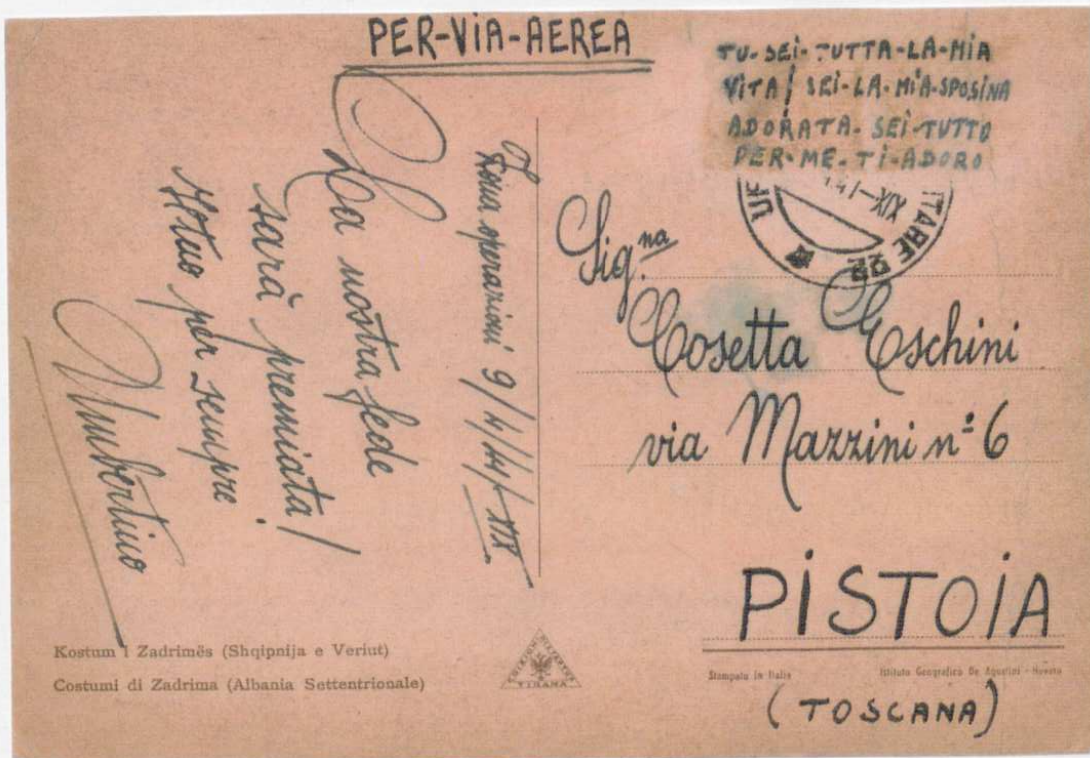 PER-VIA-AEREA
TU-SEI-TUTTA-LA-MIA
VITA! SEI-LA-MIA-SPOSINA
ADORATA-SEI-TUTTO
PER-ME-TI-ADORO
Zona operazioni 9/4/41/XIX
La nostra fede
sarà premiata!
tuo per sempre
Umbertino
Sig.na
Cosetta Eschini
via Mazzini n=6
PISTOIA
(TOSCANA)
Kostum i Zadrimës (Shqipnija e Veriut)
Costumi di Zadrima (Albania Settentrionale)
TIRANA
Stampato in Italia
Istituto Geografico De Agostini - Novara
XIX
ITARE 22